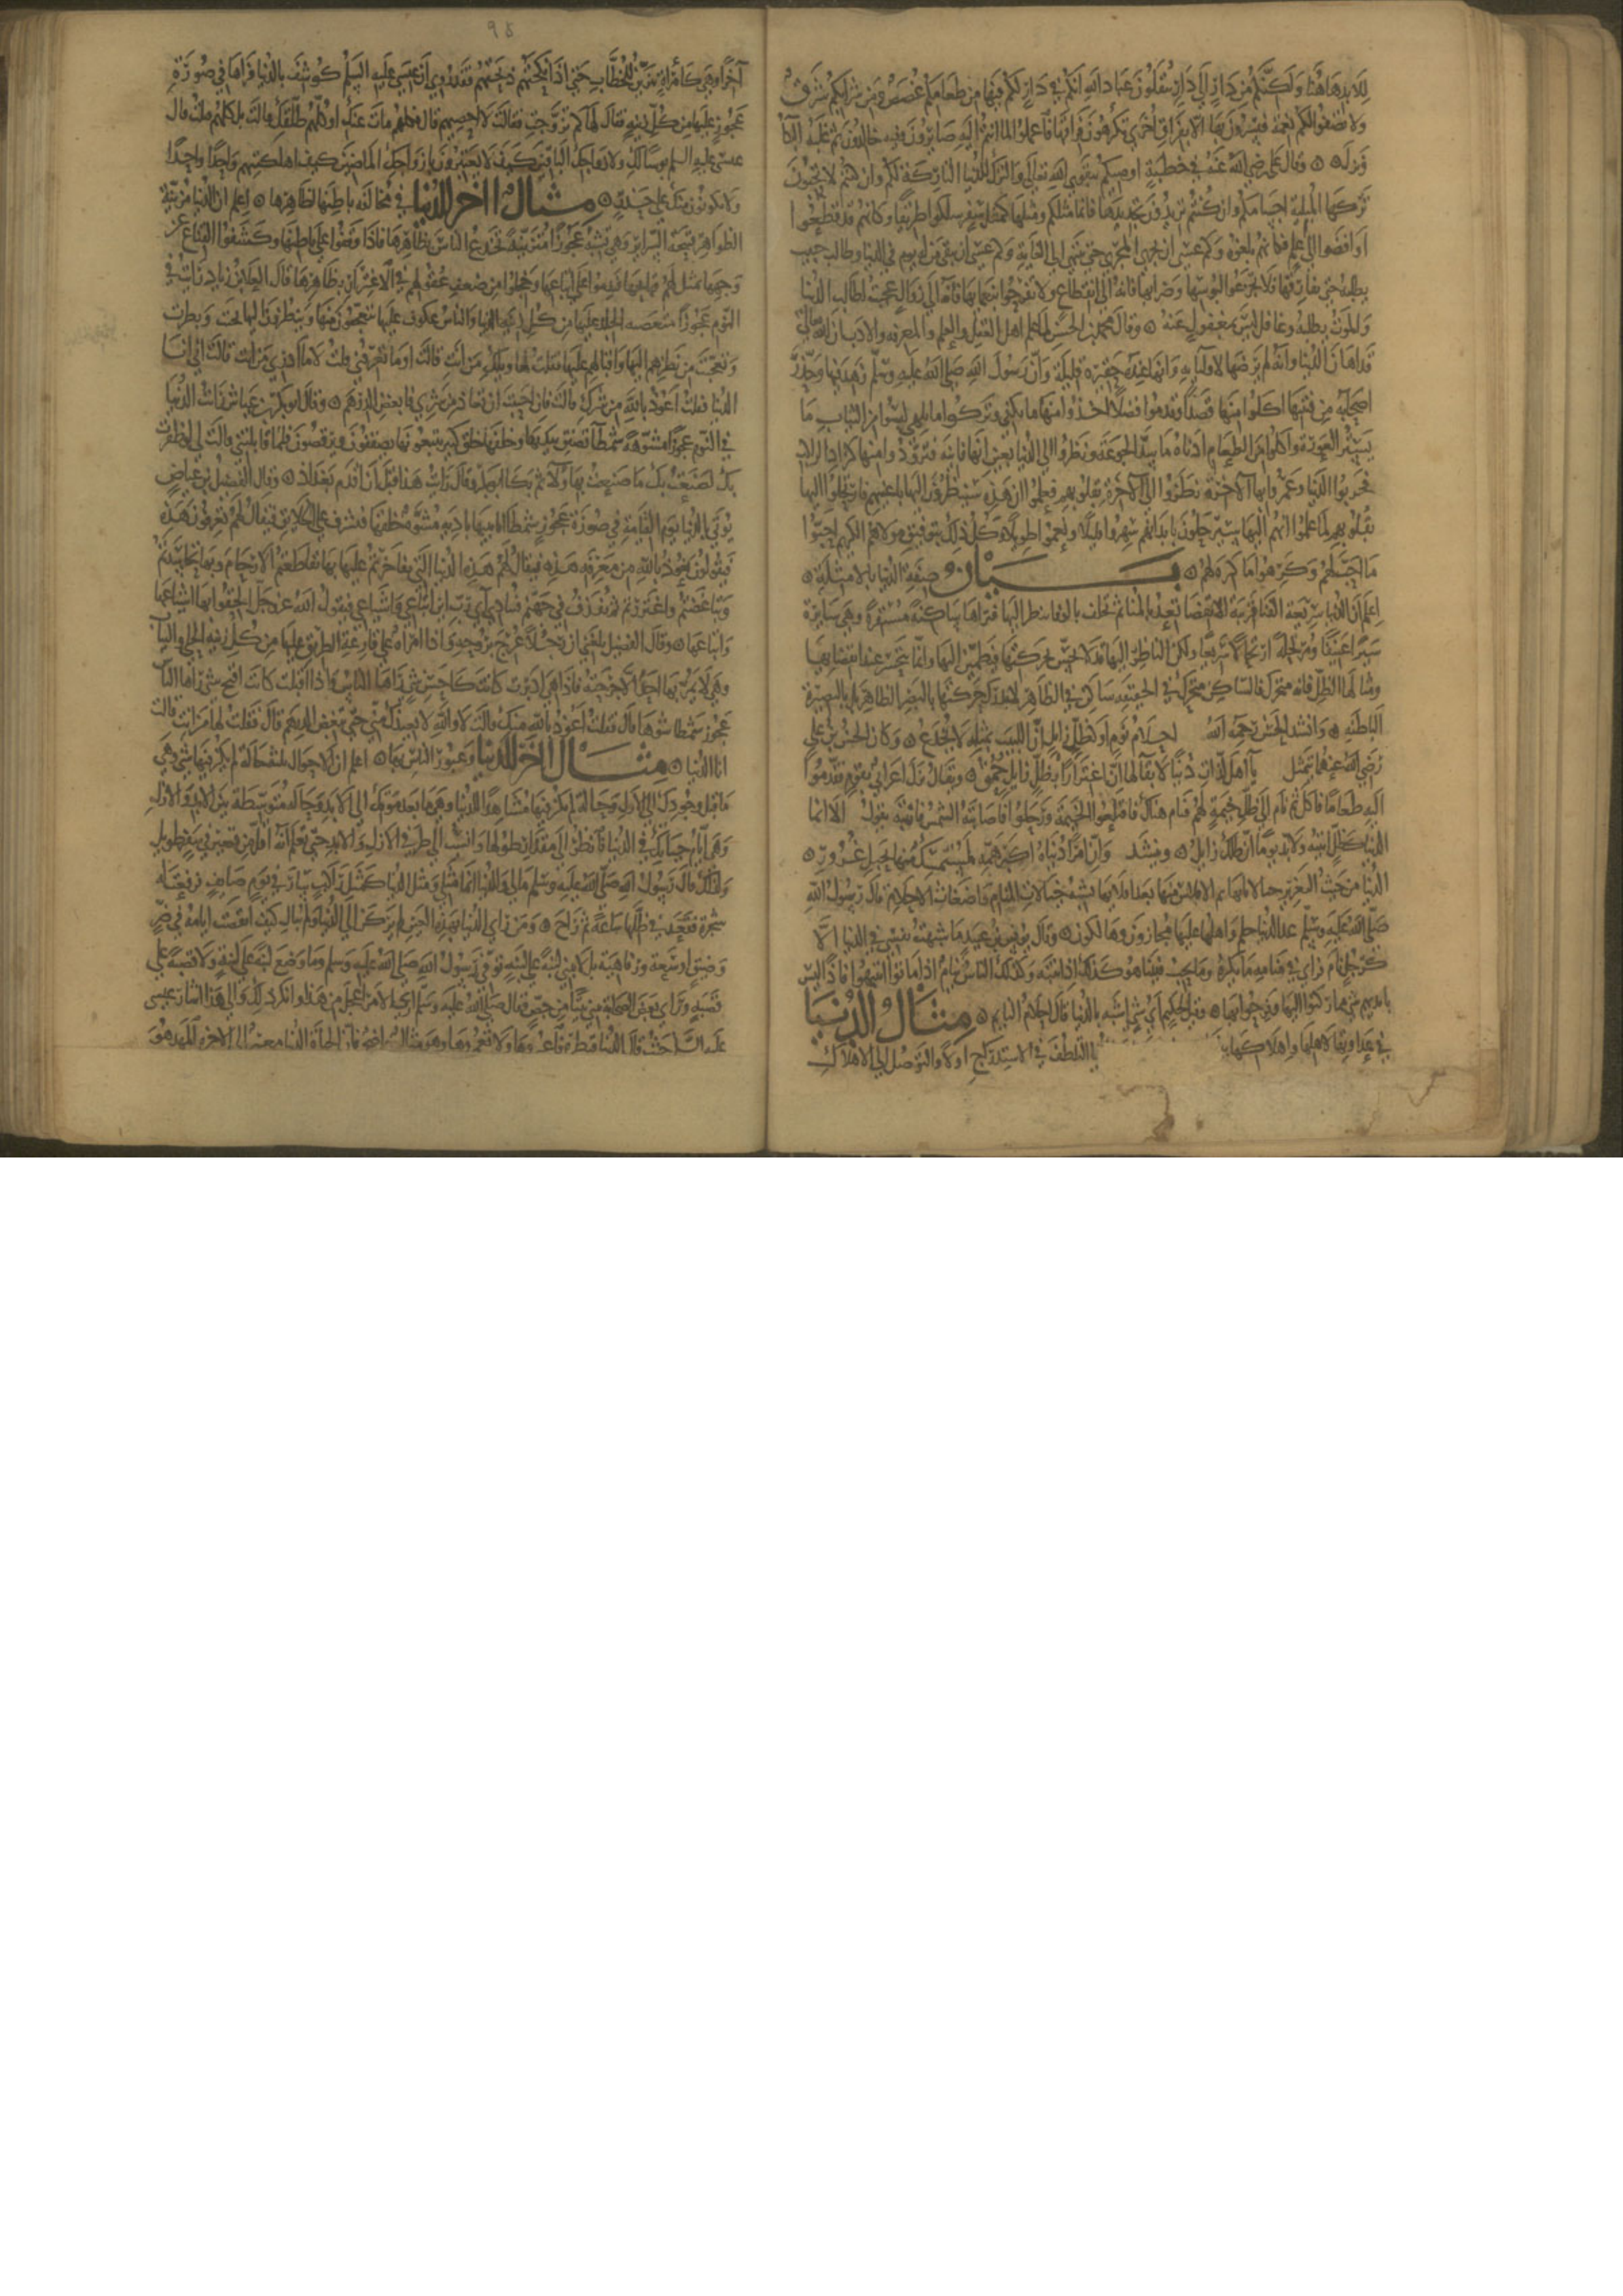 للابد ها هنا ولكنكم من دار إلى دار تنقلون عباد الله انكم في دار لكم فيها من طعامكم غصص ومن شرابكم شرق
ولا تصفوا لكم نعمة تسرون بها الا بفراق اخرى تكرهون فراقها فاعملوا لما انتم اليه صايرون وفيه خالدون ثم غلبه البكا
ونزل ه وقال علي رضي الله عنه في خطبته اوصيكم بتقوى الله تعالى والترك للدنيا التاركة لكم وان كنتم لا تحبون
تركها المبلية اجسامكم وانتم تريدون تجديدها فانما مثلكم ومثلها كمثل سفر سلكوا طريقا وكانهم قد قطعوا
او افضوا الى علم فكانهم بلغوه وكم عسى ان يجري المجري حتى ينتهي الى الغاية وكم عسى ان يبقى من له يوم في الدنيا وطالب حثيث
يطلبه حتى يفارقها فلا تجزعوا لبوسها وضرائها فانه الى انقطاع ولا تفرحوا بنعمائها فانه الى زوال عجبت لطالب الدنيا
والموت يطلبه وغافل ليس بمغفول عنه ه وقال محمد بن الحسين لما علم اهل الفضل والعلم والمعرفة والادب ان الله تعالى
قد اهان الدنيا وانه لم يرضها لاوليائه وانها عنده حقيرة قليلة وان رسول الله صلى الله عليه وسلم زهد فيها وحذر
اصحابه من فتنتها اكلوا منها قصدا وقدموا فضلا واخذوا منها ما يكفي وتركوا ما يلهي لبسوا من الثياب ما
يستر العورة واكلوا من الطعام ادناه ما يسد الجوعة ونظروا الى الدنيا بعين انها فانية فتزودوا منها كزاد الراكب
فخربوا الدنيا وعمروا بها الاخرة ونظروا الى الاخرة بقلوبهم فعلموا انهم سينظرون اليها باعينهم فارتحلوا اليها
بقلوبهم لما علموا انهم اليها سيرتحلون بابدانهم تعبوا قليلا ونعموا طويلا كل ذلك بتوفيق مولاهم الكريم احبوا
ما احب لهم وكرهوا ما كره لهم ه بيان صفة الدنيا بالامثلة ه
اعلم ان الدنيا سريعة الفنا قريبة الانقضا تعد بالبقا ثم تخلف بالوفا تنظر اليها فتراها ساكنة مستقرة وهي سايرة
سيرا عنيفا ومرتحلة ارتحالا سريعا ولكن الناظر اليها قد لا يحس بحركتها فيطمئن اليها وانما يحس عند انقضائها
ومثالها الظل فانه متحرك ساكن متحرك في الحقيقة ساكن في الظاهر لا تدرك حركته بالبصر الظاهر بل بالبصيرة
الباطنة ه وانشد الحسن رحمه الله احلام نوم او كظل زايل ان اللبيب بمثلها لا يخدع ه وكان الحسن بن علي
رضي الله عنهما يتمثل يا اهل لذات دنيا لا بقا لها ان اغترارا بظل زايل حمق ه ويقال نزل اعرابي بقوم فقدموا
اليه طعاما فاكل ثم نام الى ظل خيمة لهم فنام هناك فاقتلعوا الخيمة ورحلوا فاصابته الشمس فانتبه يقول الا انما
الدنيا كظل ثنية ولا بد يوما ان ظلك زايل ه وينشد وان امرا دنياه اكبر همه لمستمسك منها بحبل غرور ه
الدنيا من حيث التغرير بخيالاتها ثم الافلاس منها بعد افلاتها تشبه خيالات المنام واضغاث الاحلام قال رسول الله
صلى الله عليه وسلم الدنيا حلم واهلها عليها مجازون وهالكون ه وقال يونس بن عبيد ما شبهت نفسي في الدنيا الا
كرجل نام فراى في منامه ما يكره وما يحب فبينا هو كذلك اذ انتبه وكذلك الناس نيام اذا ماتوا انتبهوا فاذا ليس
بايديهم شي مما ركنوا اليها وفرحوا بها ه وقيل لحكيم اي شي اشبه بالدنيا قال احلام النايم ه مثال الدنيا
في عداوتها لاهلها واهلاكها با التلطف في الاستدراج اولا والتوصل الى الاهلاك
٩٥
آخرا وهي كامراة تتزين للخطاب حتى اذا نكحتهم ذبحتهم وقد روي ان عيسى عليه السلم كوشف بالدنيا فراها في صورة
عجوز عليها من كل زينة فقال لها كم تزوجت فقالت لا احصيهم قال فكلهم مات عنك او كلهم طلقك قالت بل كلهم قتلت قال
عيسى عليه السلم بوسا لك ولازواجك الباقين كيف لا يعتبرون بازواجك الماضين كيف اهلكتيهم واحدا واحدا
ولا يكونون منك على حذر ه مثال اخر للدنيا في مخالفة باطنها لظاهرها ه اعلم ان الدنيا مزينة
الظواهر قبيحة السراير وهي تشبه عجوزا متزينة تخدع الناس بظاهرها فاذا وقفوا على باطنها وكشفوا القناع عن
وجهها تمثل لهم قبايحها فندموا على اتباعها وخجلوا من ضعف عقولهم في الاغترار بظاهرها قال العلاء بن زياد رايت في
النوم عجوزا متعصبة الجلد عليها من كل زينة الدنيا والناس عكوف عليها متعجبون منها وينظرون اليها فجئت ونظرت
وتعجبت من نظرهم اليها واقبالهم عليها فقلت لها ويلك من انت قالت اوما تعرفني قلت لا ما ادري من انت قالت انا
الدنيا فقلت اعوذ بالله من شرك قالت فان احببت ان تعاذ من شري فابغض الدرهم ه وقال ابو بكر بن عياش رايت الدنيا
في النوم عجوزا مشوهة شمطا تصفق بيديها وخلفها خلق كثير يتبعونها يصفقون ويرقصون فلما قابلتني قالت لي لو ظفرت
بك لصنعت بك ما صنعت بهاولا ثم بكا ابو بكر وقال رايت هذا قبل ان اقدم بغداذ ه وقال الفضيل بن عياض
يوتى بالدنيا يوم القيامة في صورة عجوز شمطا انيابها بادية مشوه خلقها فتشرف على الخلايق فيقال لهم تعرفون هذه
فيقولون نعوذ بالله من معرفة هذه فيقال لهم هذه الدنيا التي تفاخرتم عليها بها تقاطعتم الارحام وبها تحاسدتم
وتباغضتم واغتررتم ثم تقذف في جهنم فتنادي اي رب اين اتباعي واشياعي فيقول الله عز وجل الحقوا بها اتباعها
واشياعها ه وقال الفضيل بلغني ان رجلا عرج بروحه فاذا امراة على قارعة الطريق عليها من كل زينة الحلي والثياب
وهي لا يمر بها احد الا جرحته فاذا هي ادبرت كانت كاحسن شي راها الناس واذا اقبلت كانت اقبح شي راها الناس
عجوز شمطا شوها قال فقلت اعوذ بالله منك قالت لا والله لا يعيذك مني حتى تبغض الدرهم قال فقلت لها من انت قالت
انا الدنيا ه مثال اخر للدنيا وعبور الناس بها ه اعلم ان الاحوال ثلث حالة لم تكن فيها شي وهي
ما قبل وجودك الى الازل وحالة لم تكن فيها مشاهدا للدنيا وهو ما بعد موتك الى الابد وحالة متوسطة بين الابد والازل
وهي ايام حياتك في الدنيا فانظر الى مقدار طولها وانسبه الى طرفي الازل والابد حتى تعلم انه اقل من منزل في سفر طويل
ولذلك قال رسول الله صلى الله عليه وسلم ما لي وللدنيا انما مثلي ومثل الدنيا كمثل راكب سار في يوم صايف فرفعت له
شجرة فقعد في ظلها ساعة ثم راح ه ومن راى الدنيا بهذه العين لم يركن الى الدنيا ولم يبال كيف انقضت ايامه في ضر
وضيق او سعة ورفاهية بل لا يبني لبنة على لبنة توفي رسول الله صلى الله عليه وسلم وما وضع لبنة على لبنة ولا قصبة على
قصبة وراى بعض الصحابة يبني بيتا من جص فقال صلى الله عليه وسلم ارى الامر اعجل من هذا وانكر ذلك والى هذا اشار عيسى
عليه السلم حيث قال الدنيا قنطرة فاعبروها ولا تعمروها وهو مثال واضح فان الحياة الدنيا معبر الى الاخرة المهد هو